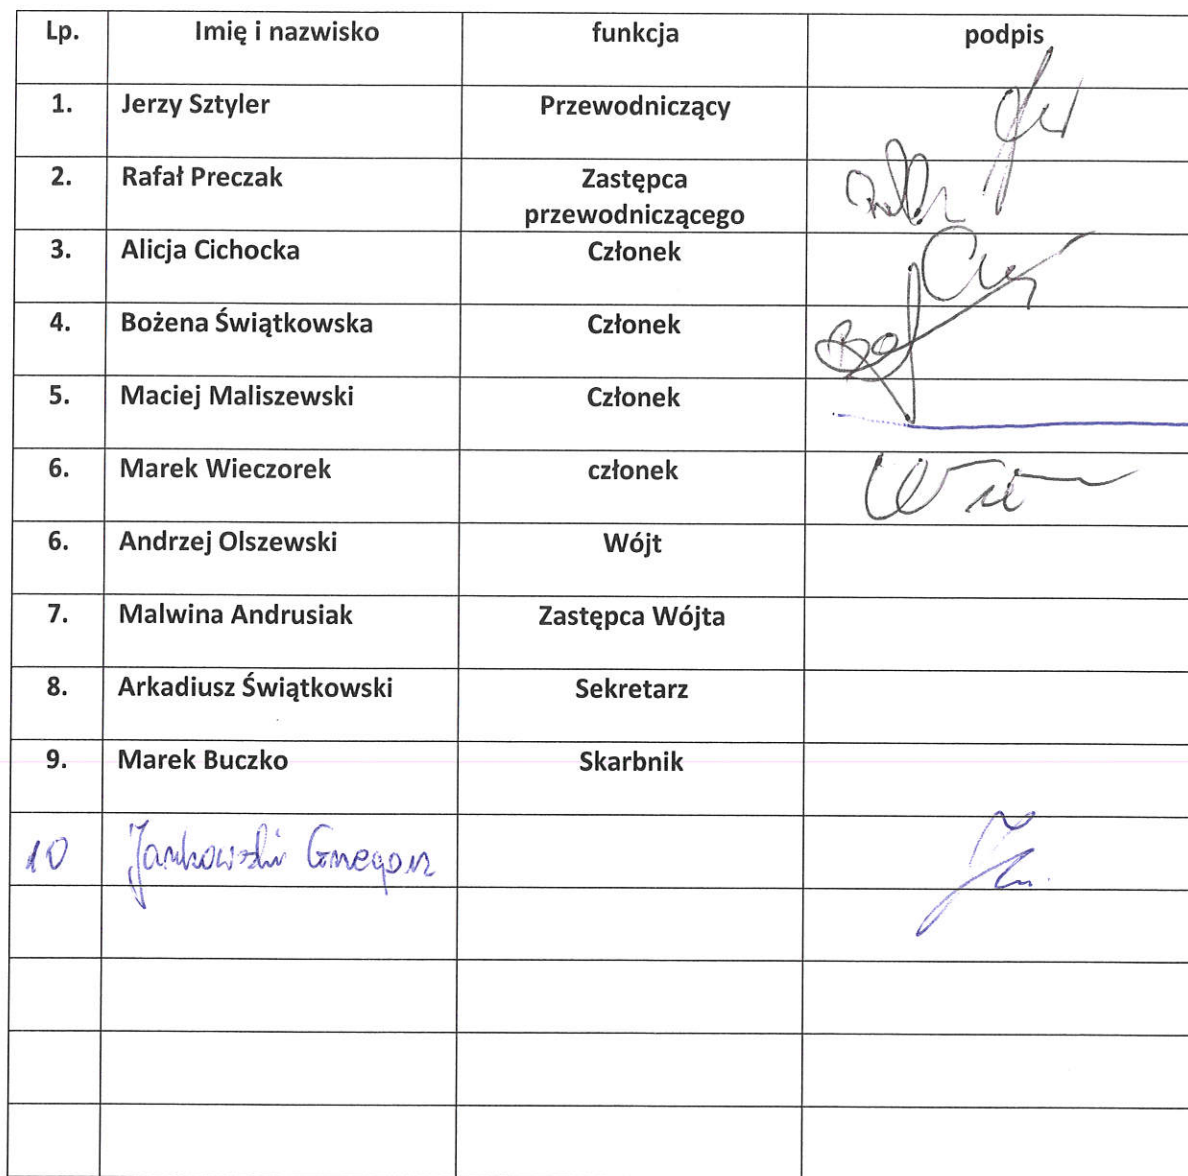 Lp. Imię i nazwisko funkcja podpis
1. Jerzy Sztyler Przewodniczący
2. Rafał Preczak Zastępca
przewodniczącego
3. Alicja Cichocka Członek
4. Bożena Świątkowska Członek
5. Maciej Maliszewski Członek
6. Marek Wieczorek członek
6. Andrzej Olszewski Wójt
7. Malwina Andrusiak Zastępca Wójta
8. Arkadiusz Świątkowski Sekretarz
9. Marek Buczko Skarbnik
10 Jankowski Grzegorz